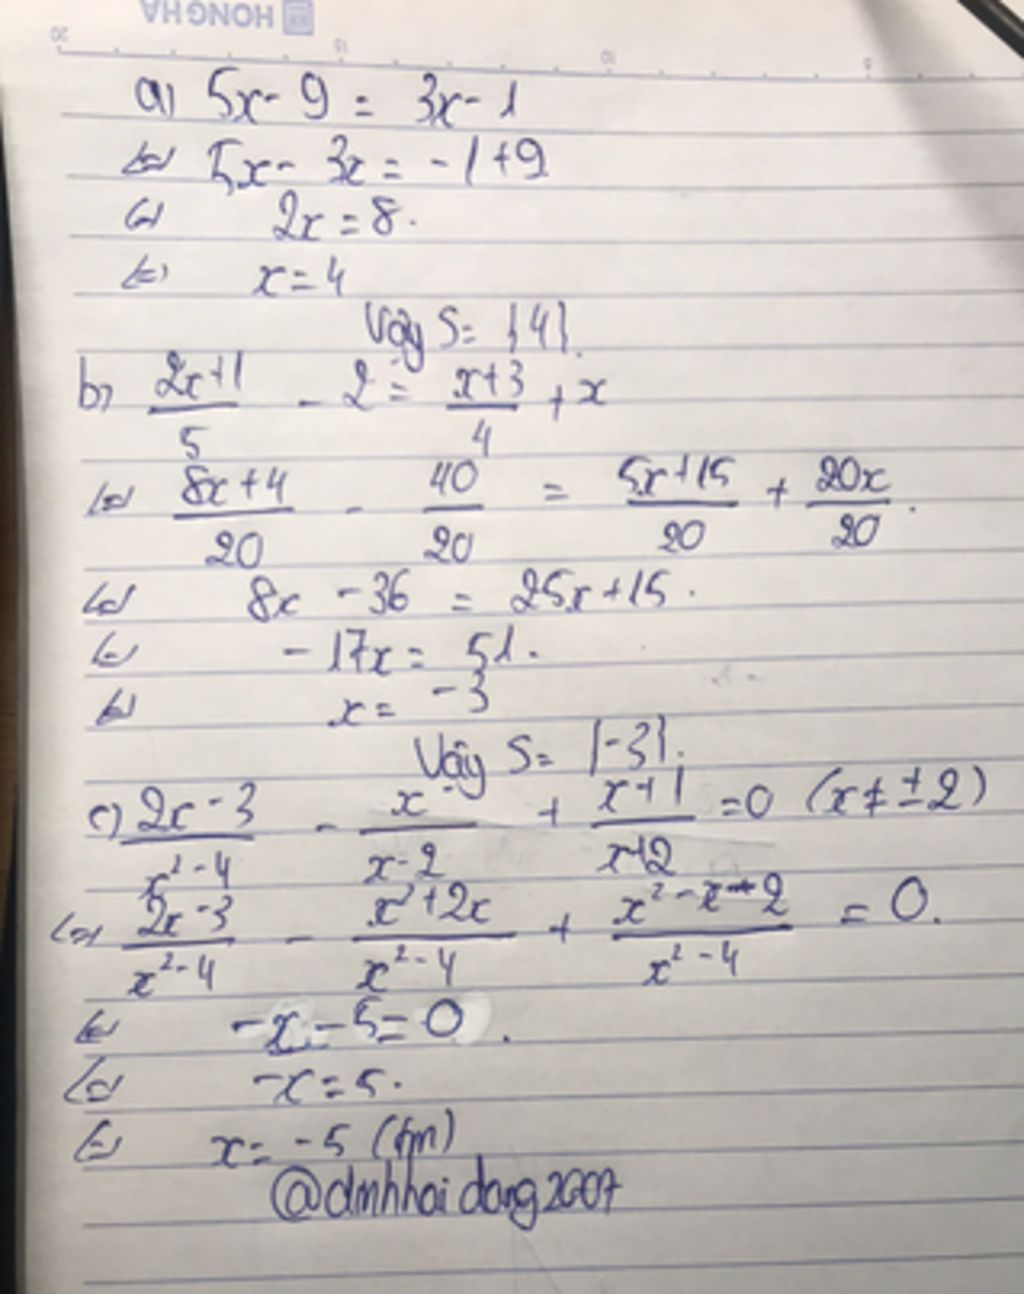 HONGHA
20 15 10 5
a) 5x - 9 = 3x - 1
<=> 5x - 3x = -1 + 9
<=> 2x = 8.
<=> x = 4
Vậy S = {4}.
b) (2x+1)/5 - 2 = (x+3)/4 + x
<=> (8x+4)/20 - 40/20 = (5x+15)/20 + 20x/20.
<=> 8x - 36 = 25x + 15.
<=> -17x = 51.
<=> x = -3
Vậy S = {-3}.
c) (2x-3)/(x²-4) - x/(x-2) + (x+1)/(x+2) = 0 (x ≠ ±2)
<=> (2x-3)/(x²-4) - (x²+2x)/(x²-4) + (x²-x-2)/(x²-4) = 0.
<=> -x - 5 = 0.
<=> -x = 5.
<=> x = -5 (tm)
@dinhhaidang2007